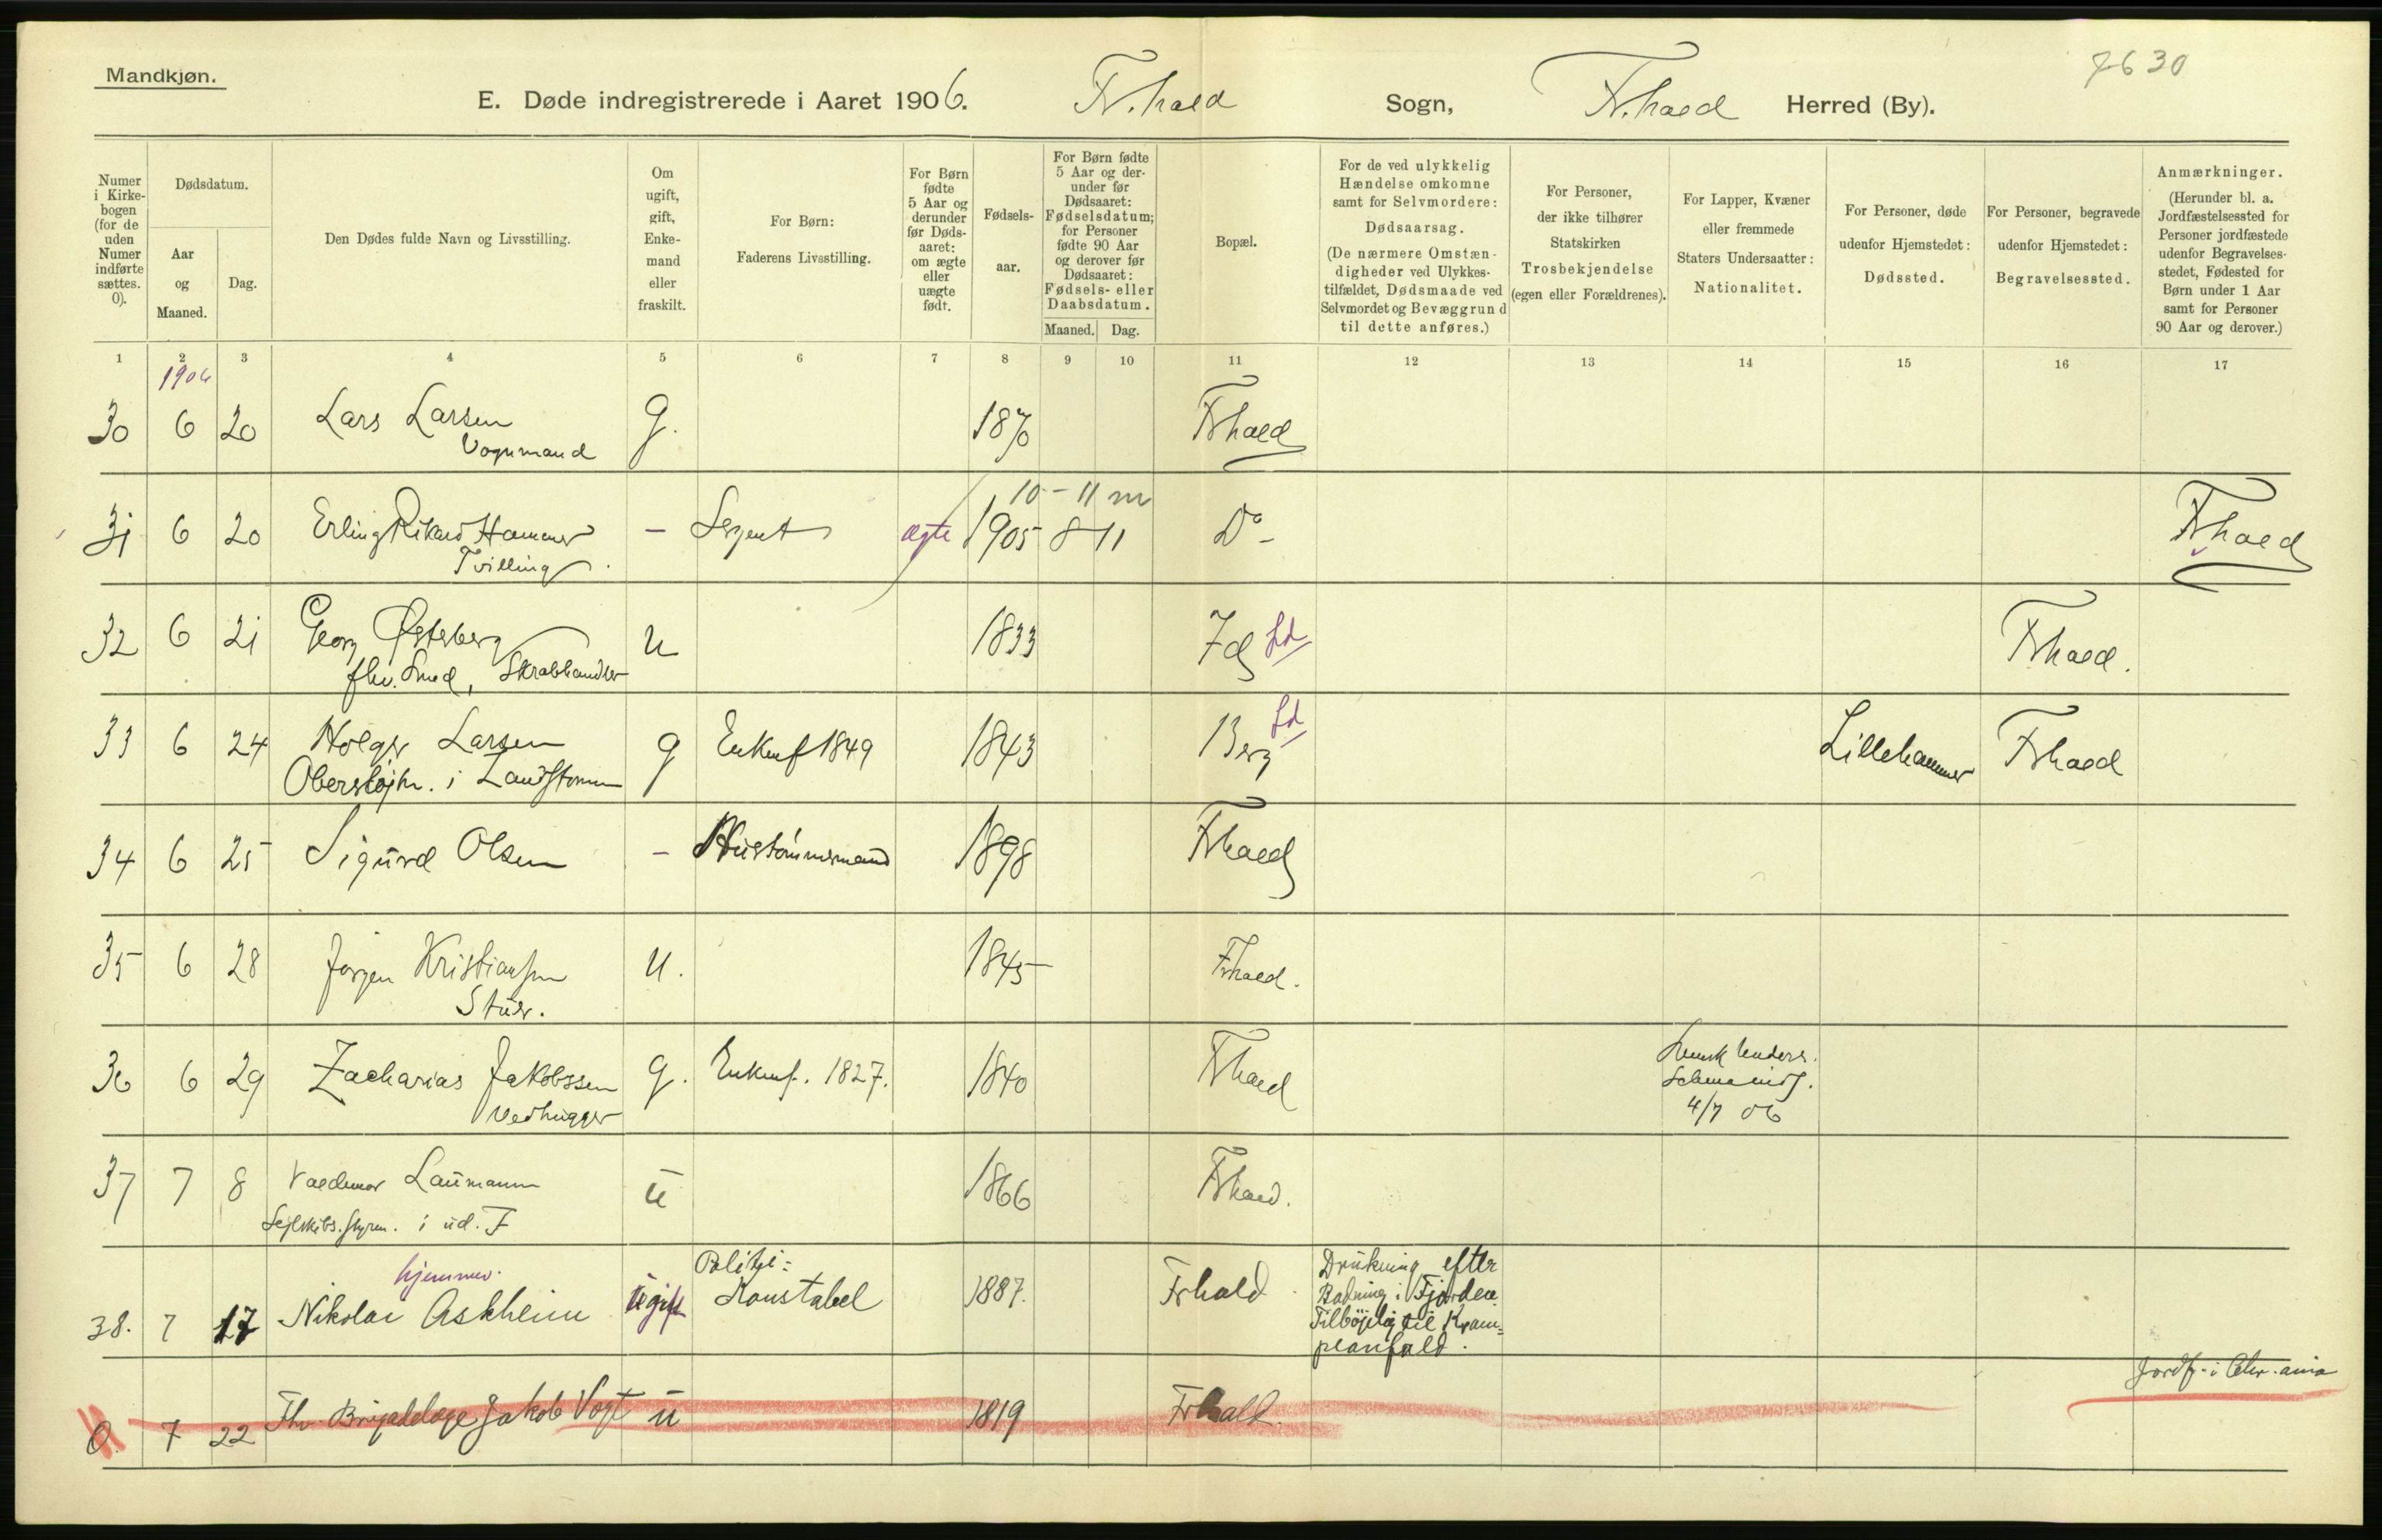 Mandkjøn.
7630
E. Døde indregistrerede i Aaret 1906. Fr.hald Sogn, Fr.hald Herred (By).
Numer i Kirke-bogen (for de uden Numer indførte sættes. 0).
Dødsdatum.
Aar og Maaned.
Dag.
Den Dødes fulde Navn og Livsstilling.
Om ugift, gift, Enke-mand eller fraskilt.
For Børn: Faderens Livsstilling.
For Børn fødte 5 Aar og derunder før Døds-aaret: om ægte eller uægte født.
Fødsels-aar.
For Børn fødte 5 Aar og der-under før Dødsaaret: Fødselsdatum; for Personer fødte 90 Aar og derover før Dødsaaret: Fødsels- eller Daabsdatum.
Maaned. Dag.
Bopæl.
For de ved ulykkelig Hændelse omkomne samt for Selvmordere: Dødsaarsag. (De nærmere Omstæn-digheder ved Ulykkes-tilfældet, Dødsmaade ved Selvmordet og Bevæggrund til dette anføres.)
For Personer, der ikke tilhører Statskirken Trosbekjendelse (egen eller Forældrenes).
For Lapper, Kvæner eller fremmede Staters Undersaatter: Nationalitet.
For Personer, døde udenfor Hjemstedet: Dødssted.
For Personer, begravede udenfor Hjemstedet: Begravelsessted.
Anmærkninger. (Herunder bl. a. Jordfæstelsessted for Personer jordfæstede udenfor Begravelses-stedet, Fødested for Børn under 1 Aar samt for Personer 90 Aar og derover.)
1 2 3 4 5 6 7 8 9 10 11 12 13 14 15 16 17
1906
30 6 20 Lars Larsen G. 1870 Frhald
Vognmand
10-11 m
31 6 20 Erling Rikard Hammer - Sergent ægte 1905 8 11 Do - Frhald
Tvilling.
32 6 21 Georg Østerberg U 1833 Id Ld Frhald.
fhv. Smed, Skrabhandler
33 6 24 Holger Larsen g Enkef 1849 1843 Berg Ld Lillehammer Frhald
Oberstløjtn. i
34 6 25 Sigurd Olsen - Hustømmermand 1898 Frhald
35 6 28 Jørgen Kristiansen U. 1845 Frhald.
Stuer.
36 6 29 Zacharias Jakobssen g. Enkef. 1827. 1840 Frhald Svensk Unders.
Vedhugger
4/7 06
37 7 8 Valdemar Laumann u 1866 Frhald.
Sejlskibs.styrm. i ud. F
hjemmev.
38. 7 17 Nikolai Askheim ugift Politi= Konstabel 1887. Frhald Drukning efter Badning i Fjorden. Tilbøjelig til Kram=peanfald.
0. 7 22 Fhv. Brigadelæge Jakob Vogt u 1819 Frhald. Jordf. i Chr.ania